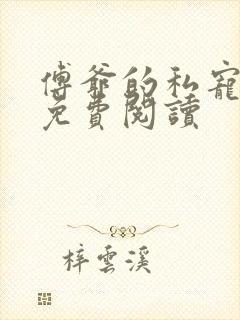 傅爺的私寵
免費閱讀
梓雲溪